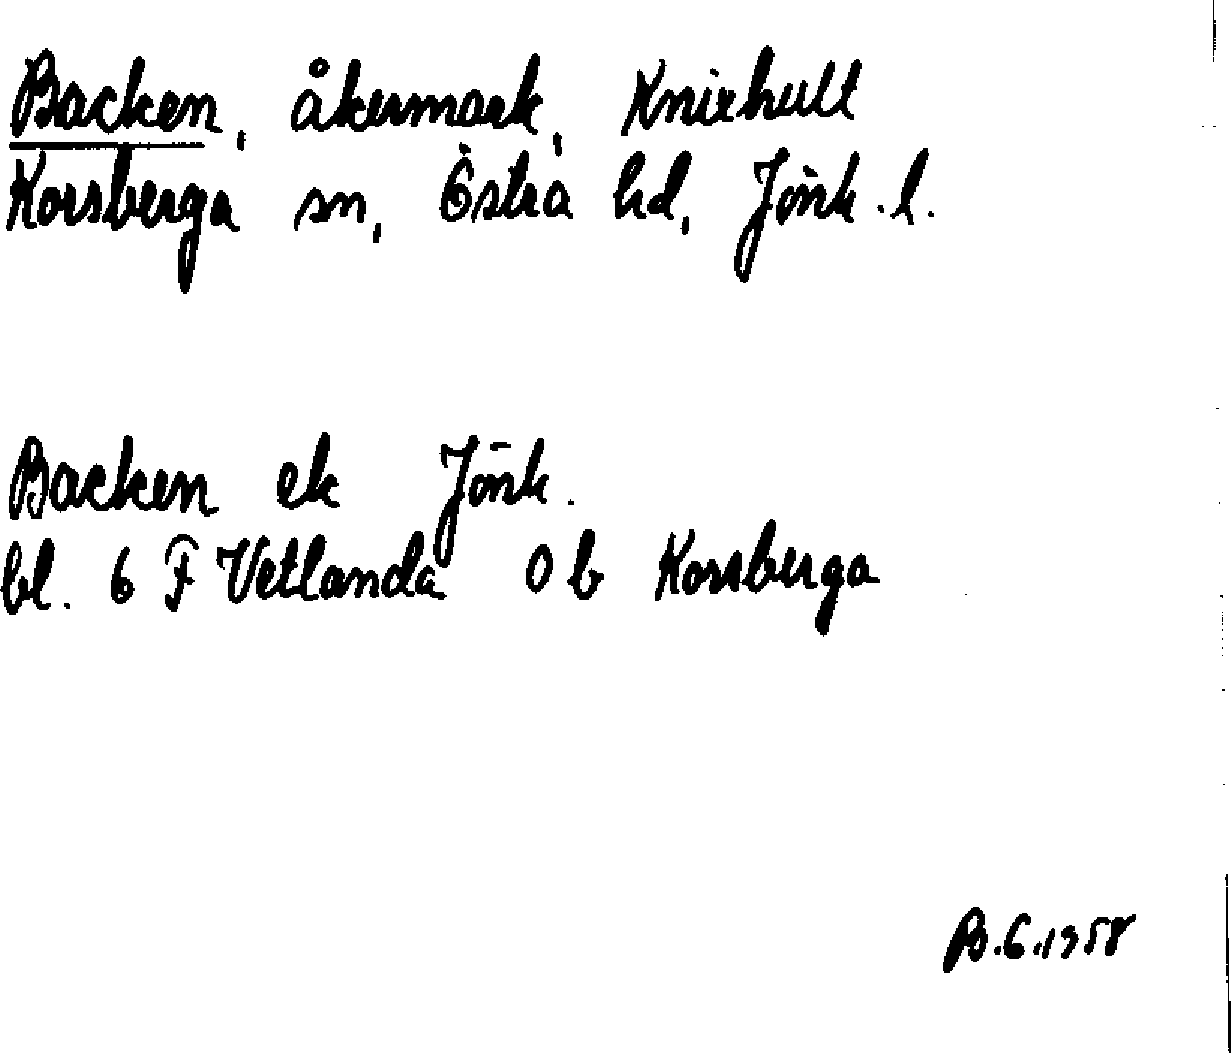 Backen, åkermark, Knixhult
Korsberga sn, Östra hd, Jönk. l.
Backen ek Jönk.
bl. 6 F Vetlanda 0 b Korsberga
B.G.1958